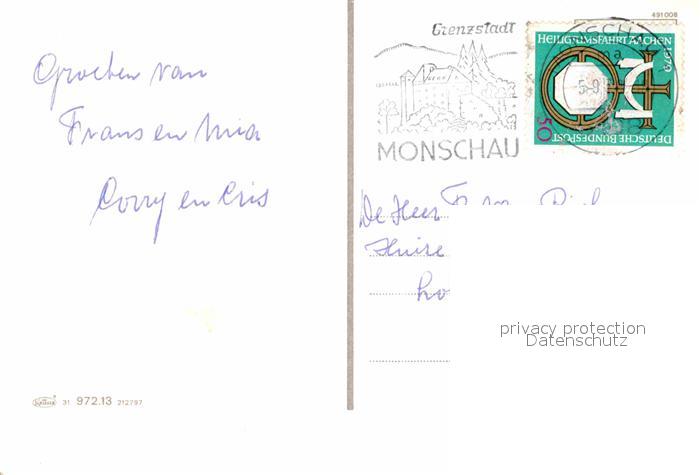 Groeten van
Frans en Mia
Corry en Cris
31 972.13 212797
491 008
Grenzstadt
MONSCHAU
HEILIGTUMSFAHRT AACHEN 1979
50
DEUTSCHE BUNDESPOST
De Heer
Huize
privacy protection
Datenschutz